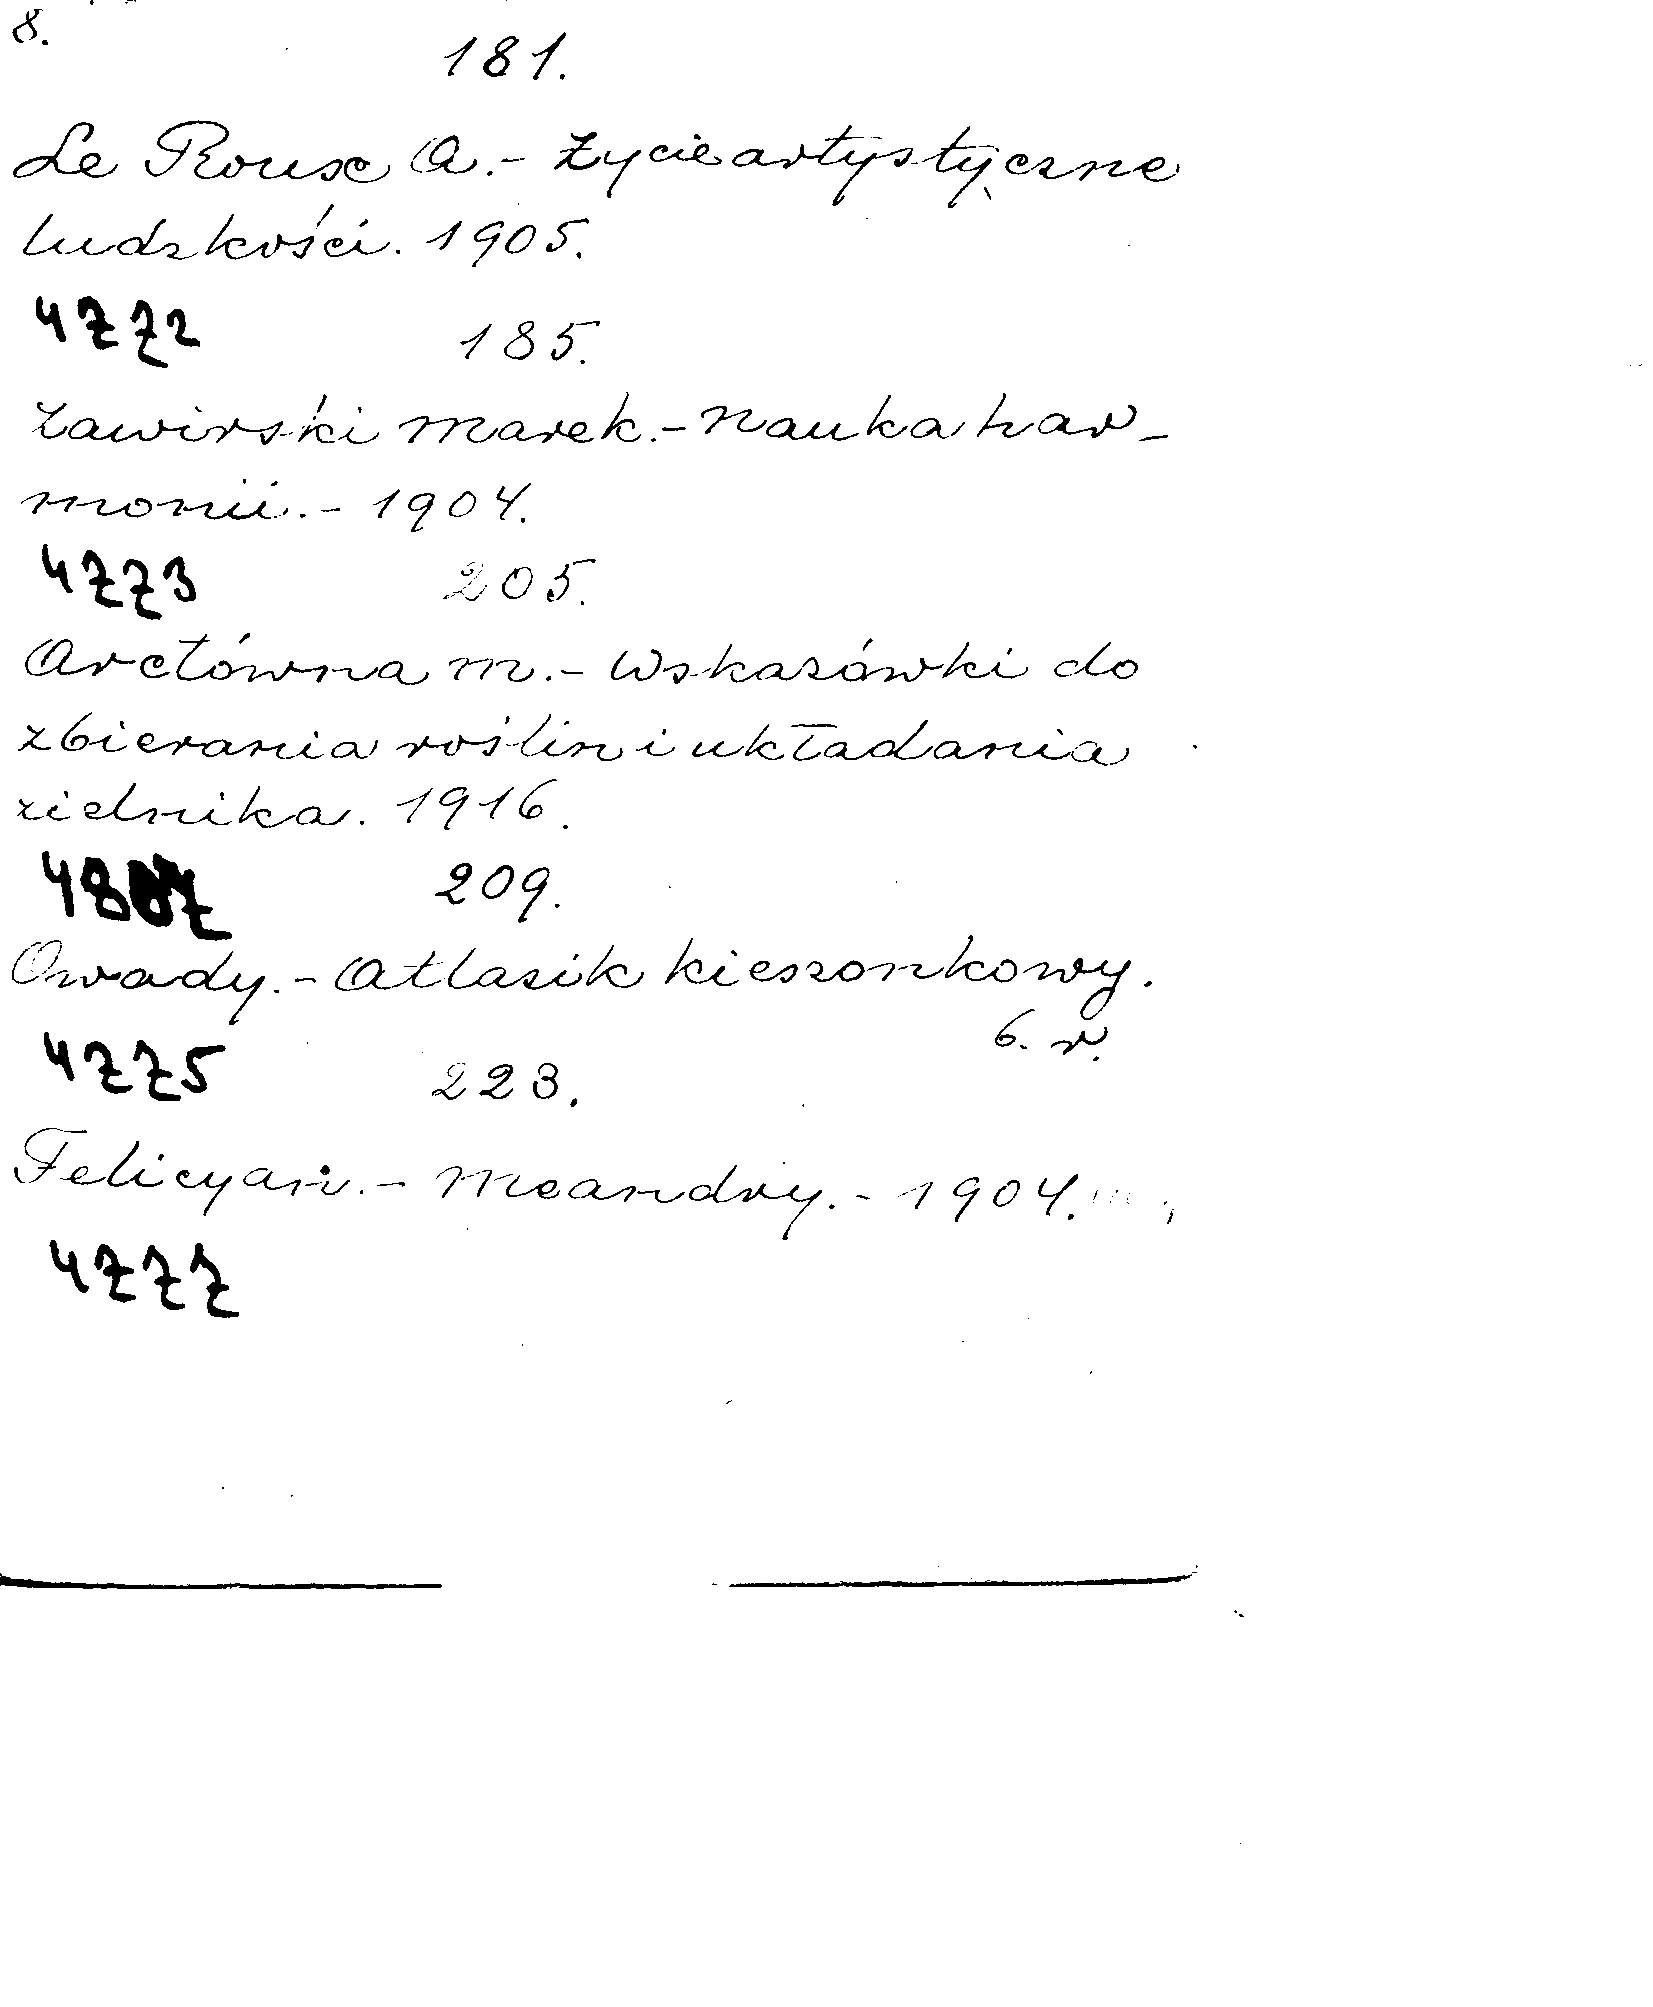 8.
181.
Le Roux A. - Życie artystyczne
ludzkości. 1905.
4772
185.
Zawirski Marek. - Nauka har-
monii. - 1904.
4773
205.
Arctówna M. - Wskazówki do
zbierania roślin i układania
zielnika. 1916.
209.
Owady. - Atlasik kieszonkowy.
b. r.
4775
223.
Felicyan. - Meandry. - 1904.
4777